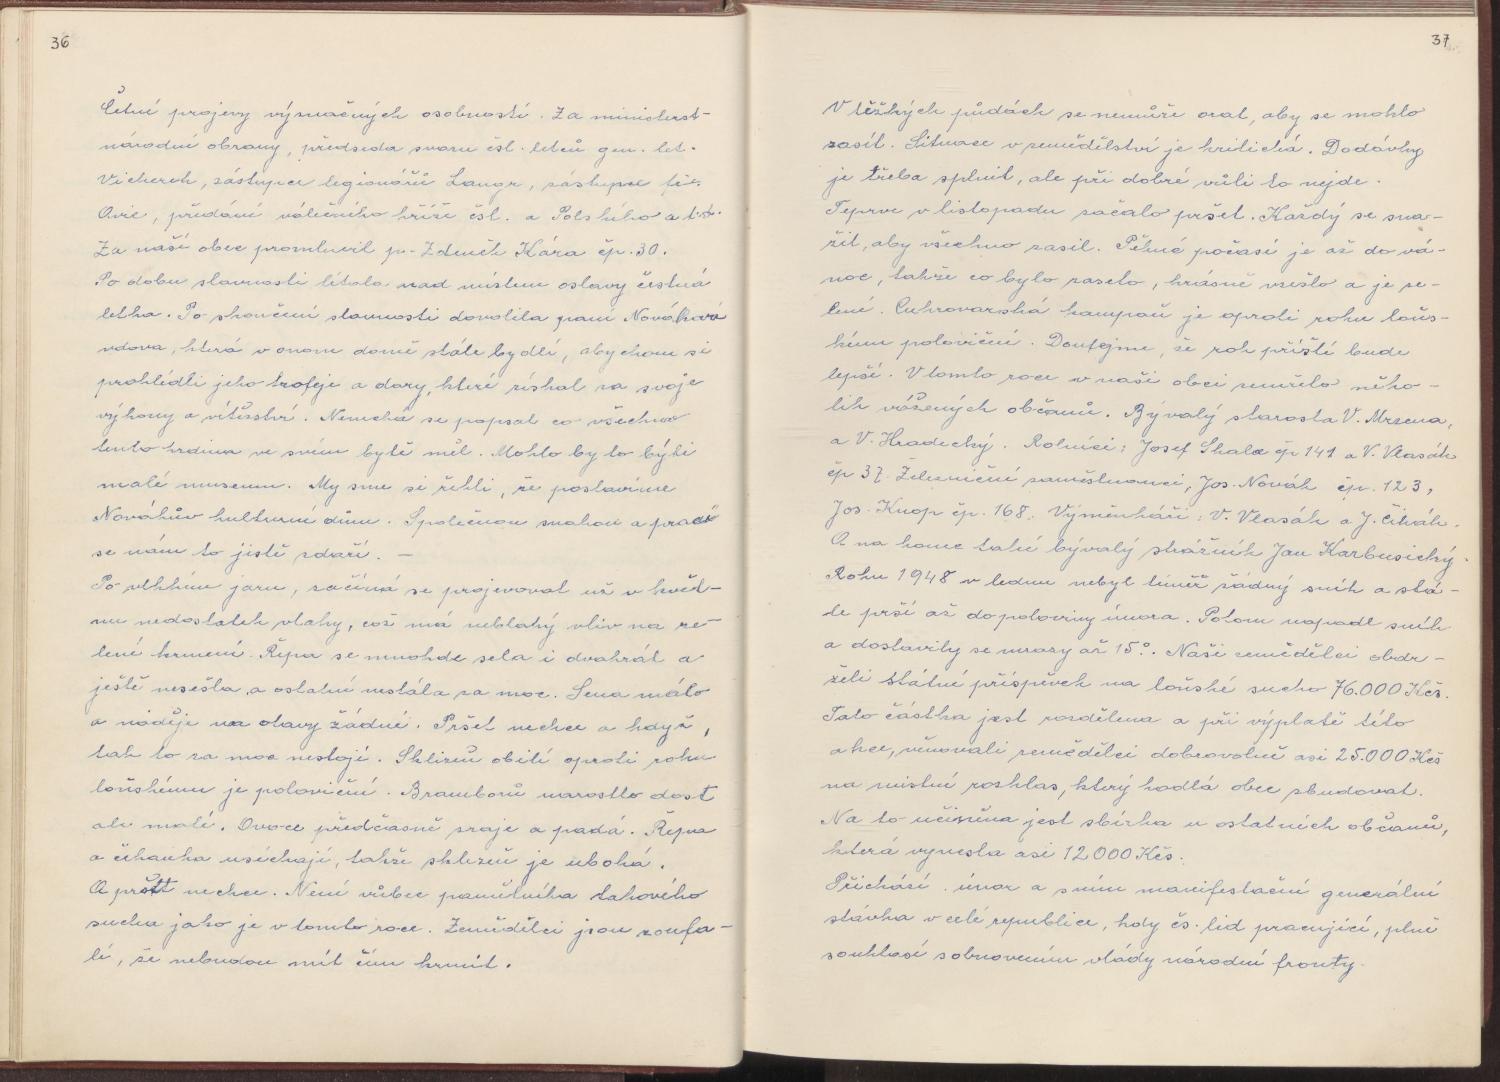 36
Četné projevy význačných osobností. Za ministerst-
národní obrany, předseda svazu čsl. letců gen. let.
Vicherek, zástupce legionářů Langr, zástupce
Avie, předání válečného kříže čsl. a Polského a t.d.
Za naší obec promluvil p. Zdeněk Kára čp. 30.
Po dobu slavnosti létala nad místem oslavy čestná
letka. Po skončení slavnosti dovolila paní Nováková
vdova, která v onom domě stále bydlí, abychom si
prohlédli jeho trofeje a dary, které získal za svoje
výkony a vítězství. Nenechá se popsat co všechno
tento hrdina ve svém bytě měl. Mohlo by to býti
malé museum. My sme si řekli, že postavíme
Novákův kulturní dům. Společnou snahou a prací
se nám to jistě zdaří. —
Po vlhkém jaru, začíná se projevovat už v květ-
nu nedostatek vláhy, což má neblahý vliv na ze-
lené krmení. Řepa se mnohde sela i dvakrát a
ještě nesešla a ostatní nestála za moc. Sena málo
a naděje na otavy žádné. Pršet nechce a když,
tak to za moc nestojí. Sklizeň obilí oproti roku
loňskému je poloviční. Bramborů narostlo dost
ale malé. Ovoce předčasně zraje a padá. Řepa
a čekanka usíchají, takže sklizeň je ubohá.
A pršet nechce. Není vůbec pamětníka takového
sucha jako je v tomto roce. Zemědělci jsou zoufa-
lí, že nebudou mít čím krmit.
37
V těžkých půdách se nemůže orat, aby se mohlo
zasít. Situace v zemědělství je kritická. Dodávky
je třeba splnit, ale při dobré vůli to nejde.
Teprve v listopadu začalo pršet. Každý se sna-
žil, aby všechno zasil. Pěkné počasí je až do vá-
noc, takže co bylo zaseto, krásně vzešlo a je ze-
lené. Cukrovarská kampaň je oproti roku loňs-
kému poloviční. Doufejme, že rok příští bude
lepší. V tomto roce v naši obci zemřelo něko-
lik vážených občanů. Bývalý starosta V. Mrzena,
a V. Hradecký. Rolníci: Josef Skala čp 141 a V. Vlasák
čp 37. Železniční zaměstnanci, Jos. Novák čp. 123,
Jos. Knop čp. 168. Výměnkáři: V. Vlasák a J. Čihák.
A na konec také bývalý strážník Jan Karbusický.
Roku 1948 v lednu nebyl téměř žádný sníh a stá-
le prší až dopoloviny února. Potom napadl sníh
a dostavily se mrazy až 15°. Naši zemědělci obdr-
želi státní příspěvek na loňské sucho 76.000 Kčs.
Tato částka jest rozdělena a při výplatě této
akce, věnovali zemědělci dobrovolně asi 25.000 Kčs
na místní rozhlas, který hodlá obec zbudovat.
Na to učiněna jest sbírka u ostatních občanů,
která vynesla asi 12000 Kčs.
Přichází únor a sním manifestační generální
stávka v celé republice, kdy čs. lid pracující, plně
souhlasí s obnovením vlády národní fronty.